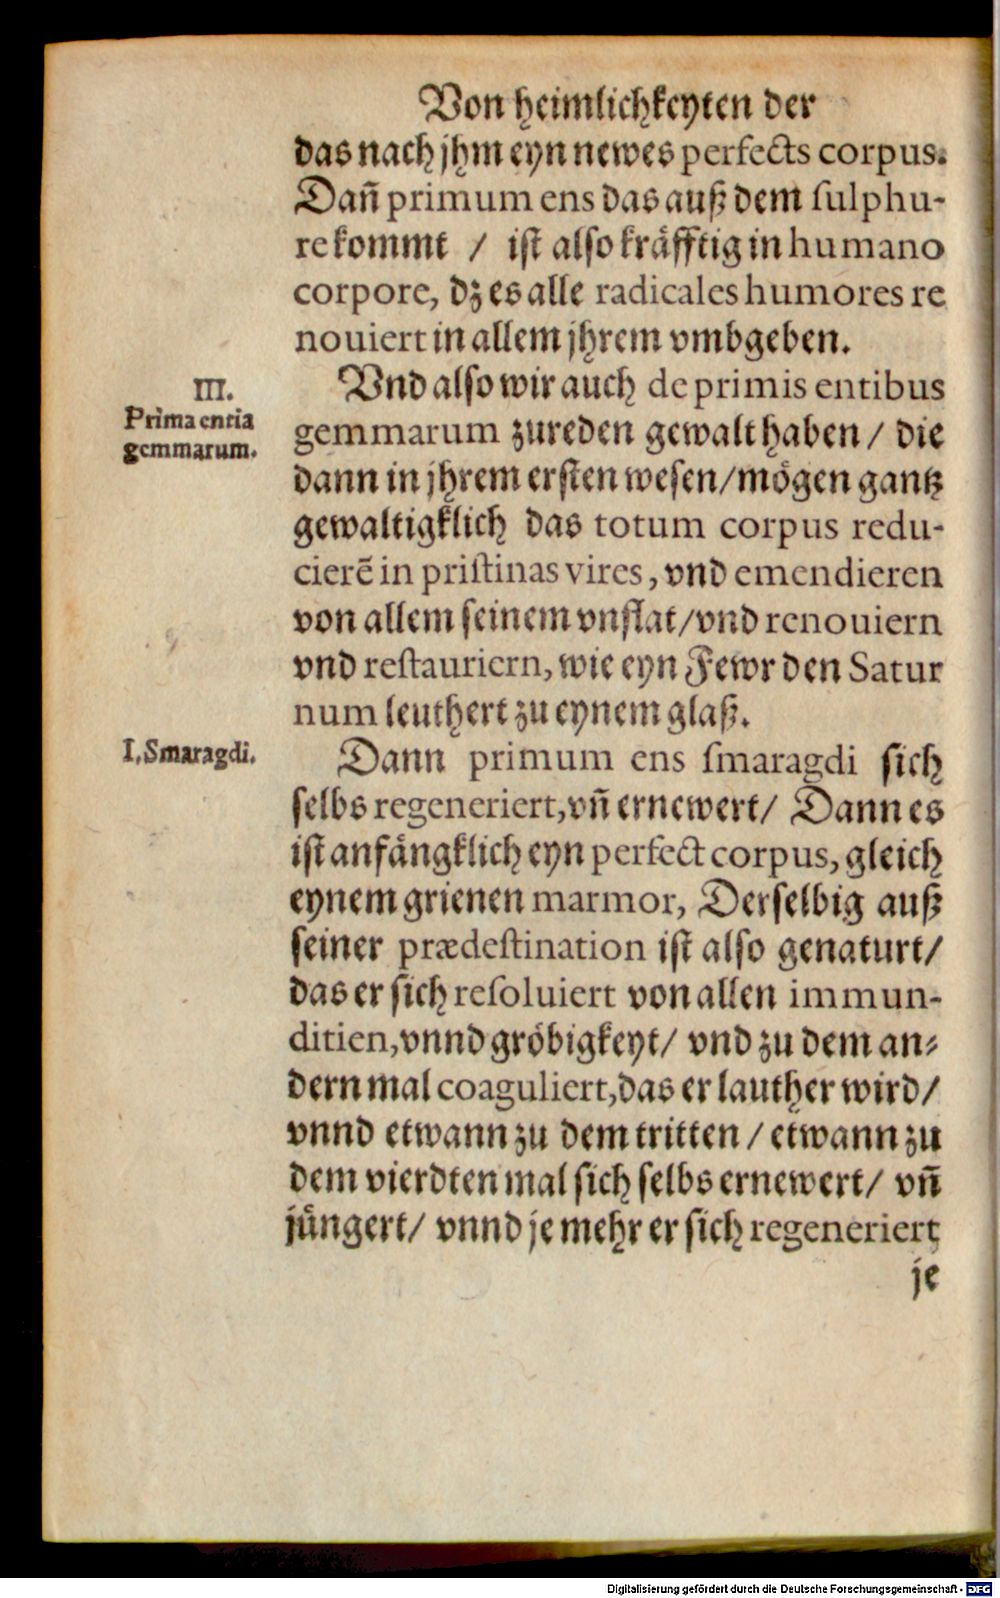 Von heimlichkeyten der
das nach jhm eyn newes perfects corpus.
Dañ primum ens das auß dem ſulphu-
re kommt / iſt alſo kräfftig in humano
corpore, dz es alle radicales humores re
nouiert in allem jhrem vmbgeben.
III.
Prima entia
gemmarum.
Vnd alſo wir auch de primis entibus
gemmarum zureden gewalt haben / die
dann in jhrem erſten weſen / mögen gantz
gewaltigklich das totum corpus redu-
cierē in priſtinas vires, vnd emendieren
von allem ſeinem vnflat / vnd renouiern
vnd reſtauriern, wie eyn Fewr den Satur
num leuthert zu eynem glaß.
I. Smaragdi.
Dann primum ens ſmaragdi ſich
ſelbs regeneriert, vñ ernewert / Dann es
iſt anfängklich eyn perfect corpus, gleich
eynem grienen marmor, Derſelbig auß
ſeiner prædeſtination iſt alſo genaturt /
das er ſich reſoluiert von allen immun-
ditien, vnnd gröbigkeyt / vnd zu dem an-
dern mal coaguliert, das er lauther wird /
vnnd etwann zu dem tritten / etwann zu
dem vierdten mal ſich ſelbs ernewert / vñ
jüngert / vnnd je mehr er ſich regeneriert
je
Digitalisierung gefördert durch die Deutsche Forschungsgemeinschaft - DFG